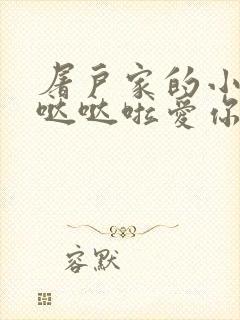 屠户家的小
哒哒啦爱你
容默